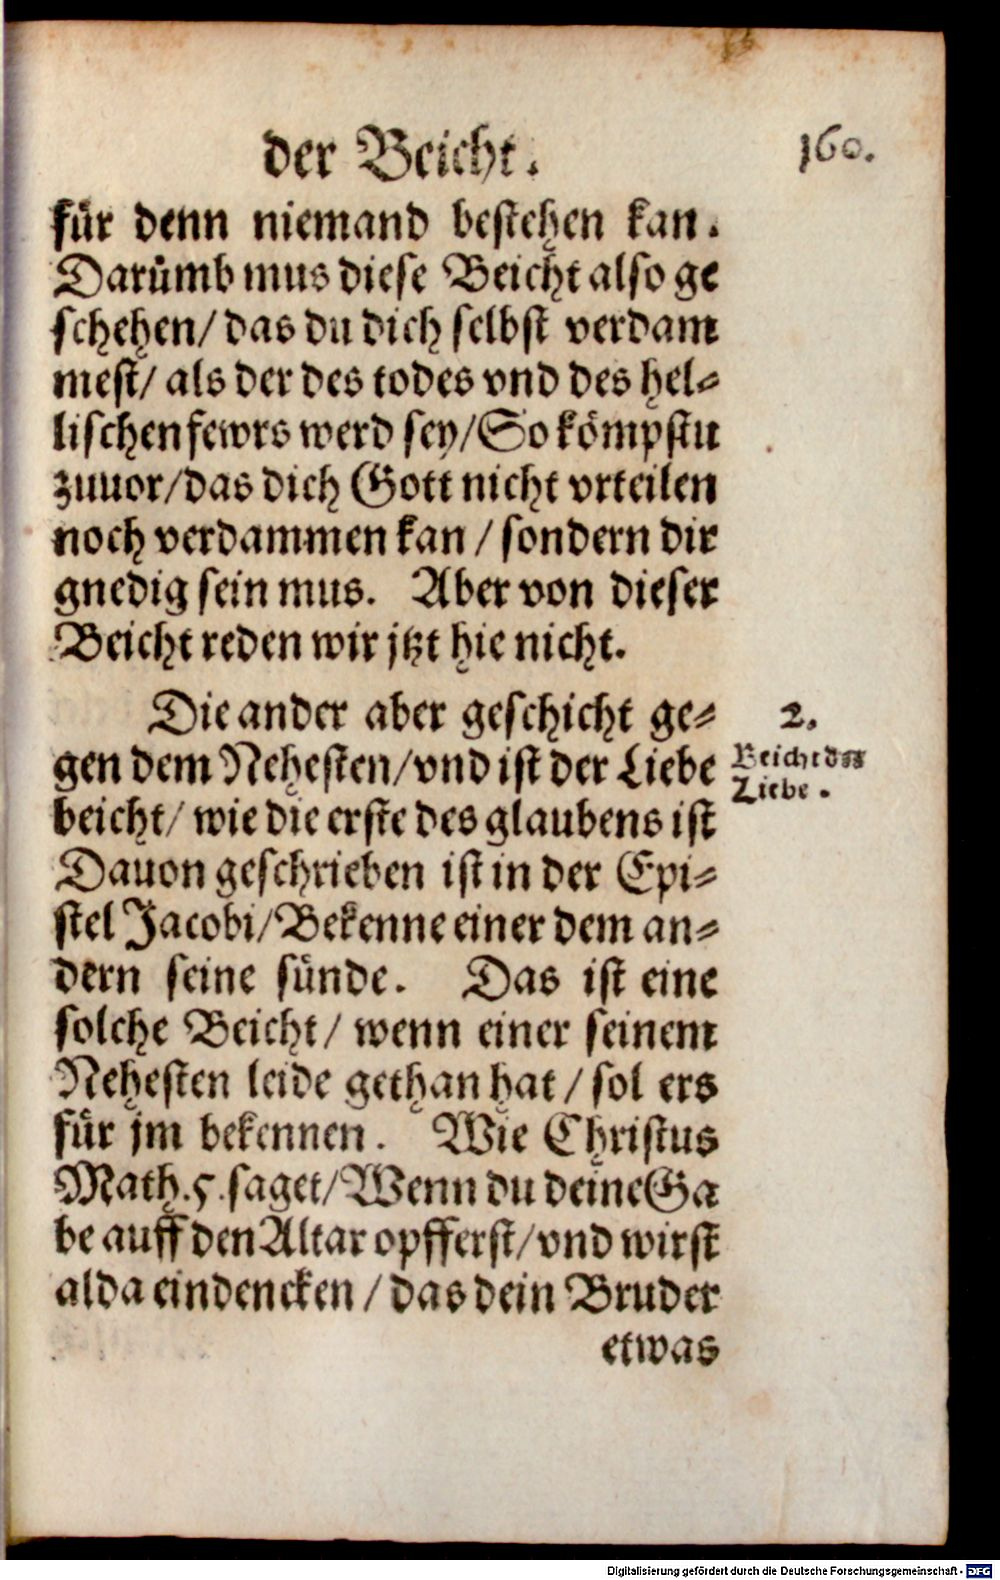 der Beicht.
160.
für denn niemand bestehen kan.
Darümb mus diese Beicht also ge
schehen/ das du dich selbst verdam
mest/ als der des todes vnd des hel-
lischen fewrs werd sey/ So kömpstu
zuuor/ das dich Gott nicht vrteilen
noch verdammen kan / sondern dir
gnedig sein mus. Aber von dieser
Beicht reden wir jtzt hie nicht.
Die ander aber geschicht ge-
gen dem Nehesten/ vnd ist der Liebe
beicht/ wie die erste des glaubens ist
Dauon geschrieben ist in der Epi-
stel Jacobi/ Bekenne einer dem an-
dern seine sünde. Das ist eine
solche Beicht/ wenn einer seinem
Nehesten leide gethan hat / sol ers
für jm bekennen. Wie Christus
Math.5.saget/ Wenn du deine Ga
be auff den Altar opfferst/ vnd wirst
alda eindencken / das dein Bruder
etwas
2.
Beicht der
Liebe.
Digitalisierung gefördert durch die Deutsche Forschungsgemeinschaft - DFG